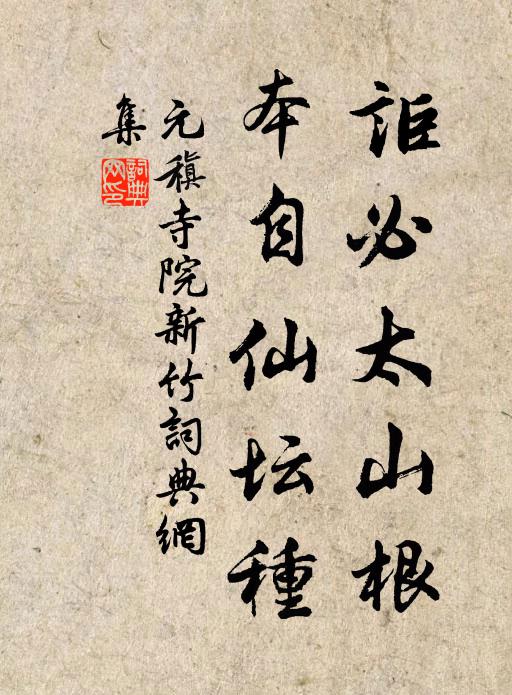 詎必太山根
本自仙坛種
元稹寺院新竹詞典網
集
詞典網印